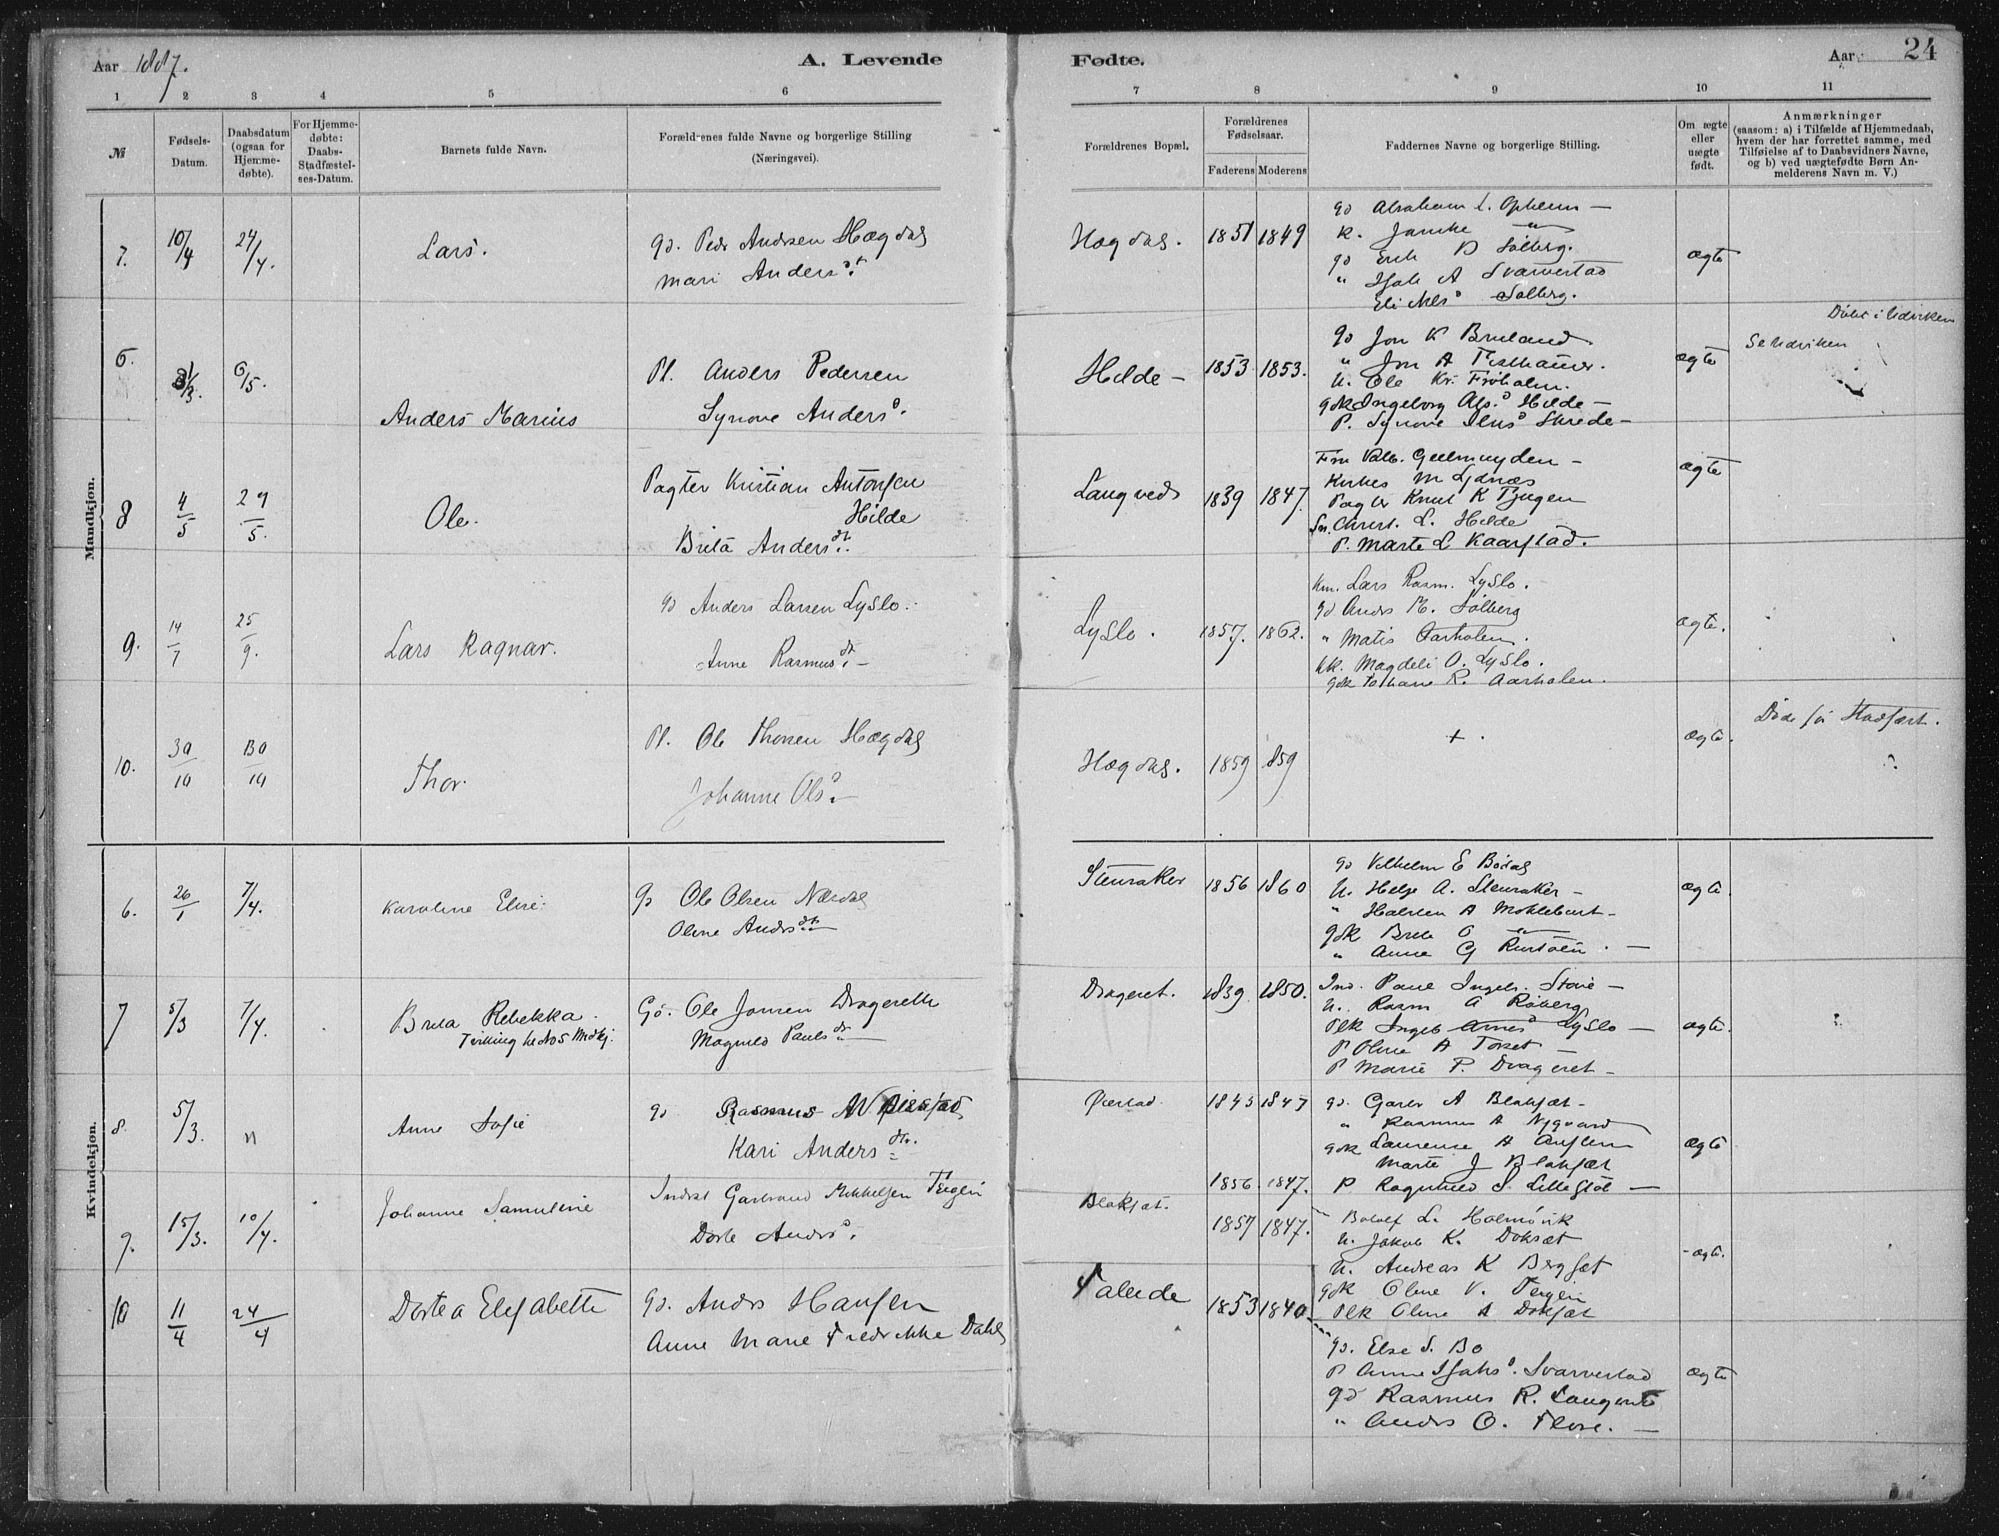 Aar 1887.
A. Levende
Fødte.
Aar
24
1 2 3 4 5 6 7 8 9 10 11
№
Fødsels-Datum.
Daabsdatum (ogsaa for Hjemme-døbte).
For Hjemme-døbte: Daabs-Stadfæstel-ses-Datum.
Barnets fulde Navn.
Forældrenes fulde Navne og borgerlige Stilling (Næringsvei).
Forældrenes Bopæl.
Forældrenes Fødselsaar.
Faderens Moderens
Faddernes Navne og borgerlige Stilling.
Om ægte eller uægte født.
Anmærkninger
(saasom: a) i Tilfælde af Hjemmedaab, hvem der har forrettet samme, med Tilføielse af to Daabsvidners Navne, og b) ved uægtefødte Børn An-melderens Navn m. V.)
Mandkjøn.
7. 10/4 24/4. Lars. gd. Peder Andersen Hægdal
Mari Andersdt.
Hægdal. 1851 1849
gd Abraham L. Opheim —
K. Jamke
gd Erik D Solberg.
" Isak A Svarvestad
Eli Nilsd Solberg.
ægte
6. 31/3 6/5. Anders Marius
Pl. Anders Pedersen
Synove Andersd.
Hilde — 1853 1853.
gd Jon K Bruland
" Jon A Tisthamer.
U. Ole Kr. Frøholm.
gdk Ingeborg Alsd Hilde —
P. Synove Jensd Skrede —
ægte
Døbt i Utviken
Se Utviken
8 4/5 29/5. Ole.
Pagter Kristian Antonsen
Hilde
Brita Andersdt.
Langved 1839 1847.
Fru Valb. Geelmuyden —
Kirkes M Lødnæs
Pagter Knut K Tjugen
Sn. Christ. L. Hilde
P. Marte L Kaarstad.
ægte
9. 14/7 25/9. Lars Ragnar.
gd Anders Larsen Lyslo.
Anne Rasmusdt. —
Lyslo. 1857. 1862.
Km. Lars Rasm. Lyslo.
gd Anders M. Solberg
" Matis Aarholen.
kk. Magdeli O. Lyslo.
gdk Johane R. Aarholen.
ægte.
10. 30/10 30/10 Thor.
Pl. Ole Thorsen Hægdal
Johanne Olsd. —
Hægdal. 1859 859
+ .
ægte.
Døde før Stadfæst.
Kvindekjøn.
6. 26/1 7/4. Karoline Elise.
gd Ole Olsen Nesdal
Oline Andersdt.
Stenraker 1856 1860
gd Vilhelm E Bødal
U. Helge A. Stenraker —
" Halsten A Moklebust —
gdk Brite O "
" Anne G Rustøen. —
ægte
7 5/3 7/4. Brita Rebekka.
Tvilling til No 5 Mndkj.
Gd. Ole Jonsen Drageret
Magnild Paulsdt.
Drageret. 1839 1850.
Ind. Paul Ingeb. Støve —
U. Rasm A Røberg
Plk Ingeb Arnesd Lyslo —
P Oline A Torset —
P Marie P. Drageret —
ægte.
8. 5/3. " Anne Sofie
gd Rasmus A Øierstad
Kari Andersdtr.
Øierstad. 1843 1847
gd. Garber A Blaksæt —
" Rasmus A Nygaard
gdk Laurense A Auflem
Marte J Blaksæt
P Ragnhild S. Lillestøl —
ægte
1856 1847.
9. 15/3. 10/4. Johanne Samuline
Indrst Garbrand Mikkelsen Teigen
Dorte Andersd.
Blaksæt. 1857 1847.
Botolf L. Holmøvik
U. Jakob K. Doksæt
U. Andreas K Bergsæt
gdk Oline V. Teigen
Plk Oline A Doksæt
ægte.
10 11/4 24/4 Dortea Elisabette
gd. Anders Hansen
Anne Marie Fredrikke Dahl
Faleide 1853 1840.
gd. Else S. Bø
P Anne Isaksd. Svarvestad
gd Rasmus R. Langvede
" Anders O. Flore. —
ægte